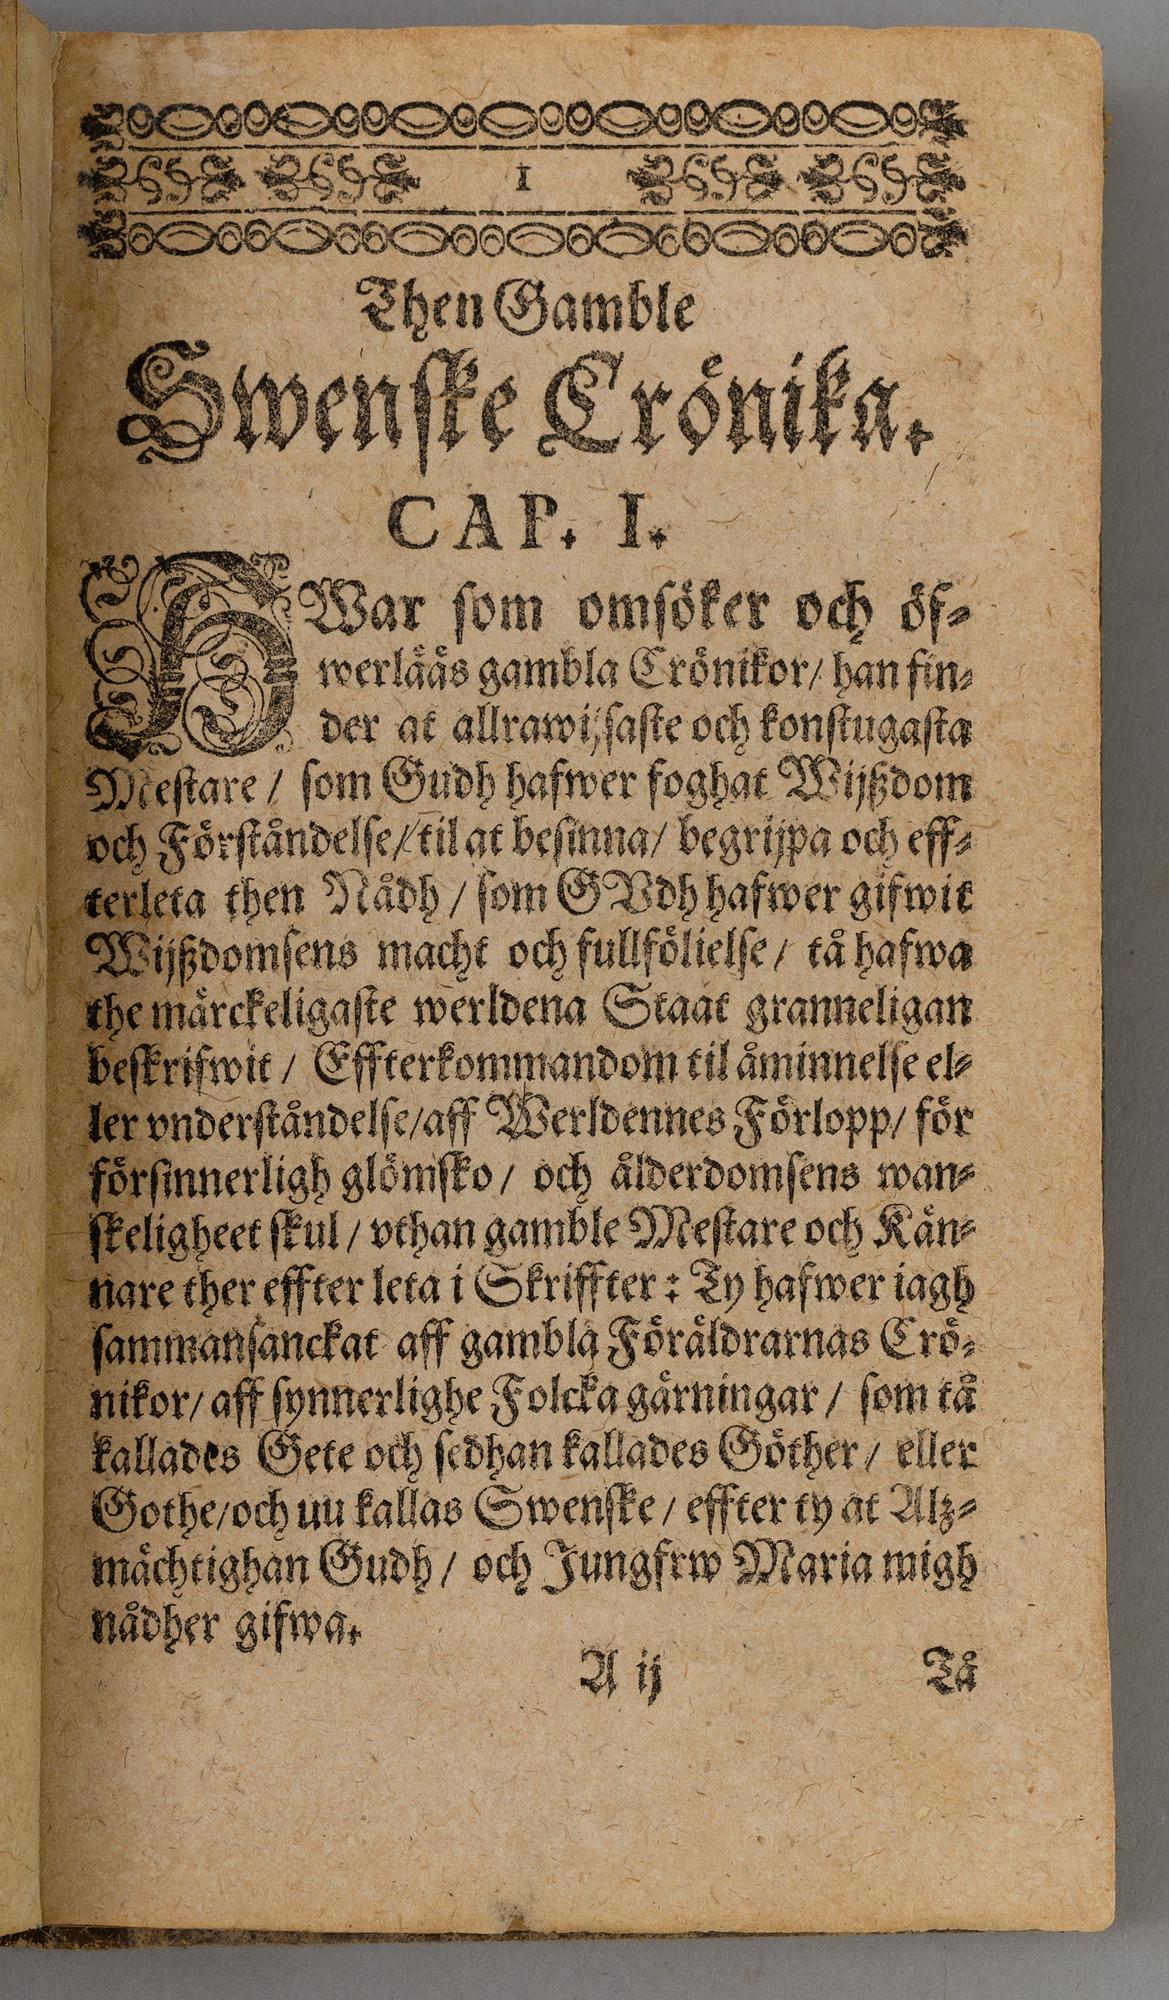 1
Then Gamble
Swenske Crönika.
CAP. I.
HWar som omsöker och öf-
werlääs gambla Crönikor/ han fin-
der at allrawijsaste och konstugasta
Mestare / som Gudh hafwer foghat Wijßdom
och Förståndelse/ til at besinna/ begrijpa och eff-
terleta then Nådh / som GVdh hafwer gifwit
Wijßdomsens macht och fullfölielse / tå hafwa
the märckeligaste werldena Staat granneligan
beskrifwit / Effterkommandom til åminnelse el-
ler vnderståndelse/aff Werldennes Förlopp/ för
försinnerligh glömsko / och ålderdomsens wan-
skeligheet skul / vthan gamble Mestare och Kän-
nare ther effter leta i Skriffter : Ty hafwer iagh
sammansanckat aff gambla Föräldrarnas Crö-
nikor/ aff synnerlighe Folcka gärningar / som tå
kallades Gete och sedhan kallades Göther / eller
Gothe/och uu kallas Swenske / effter ty at Alz-
mächtighan Gudh / och Jungfrw Maria migh
nådher gifwa.
A ij Tå